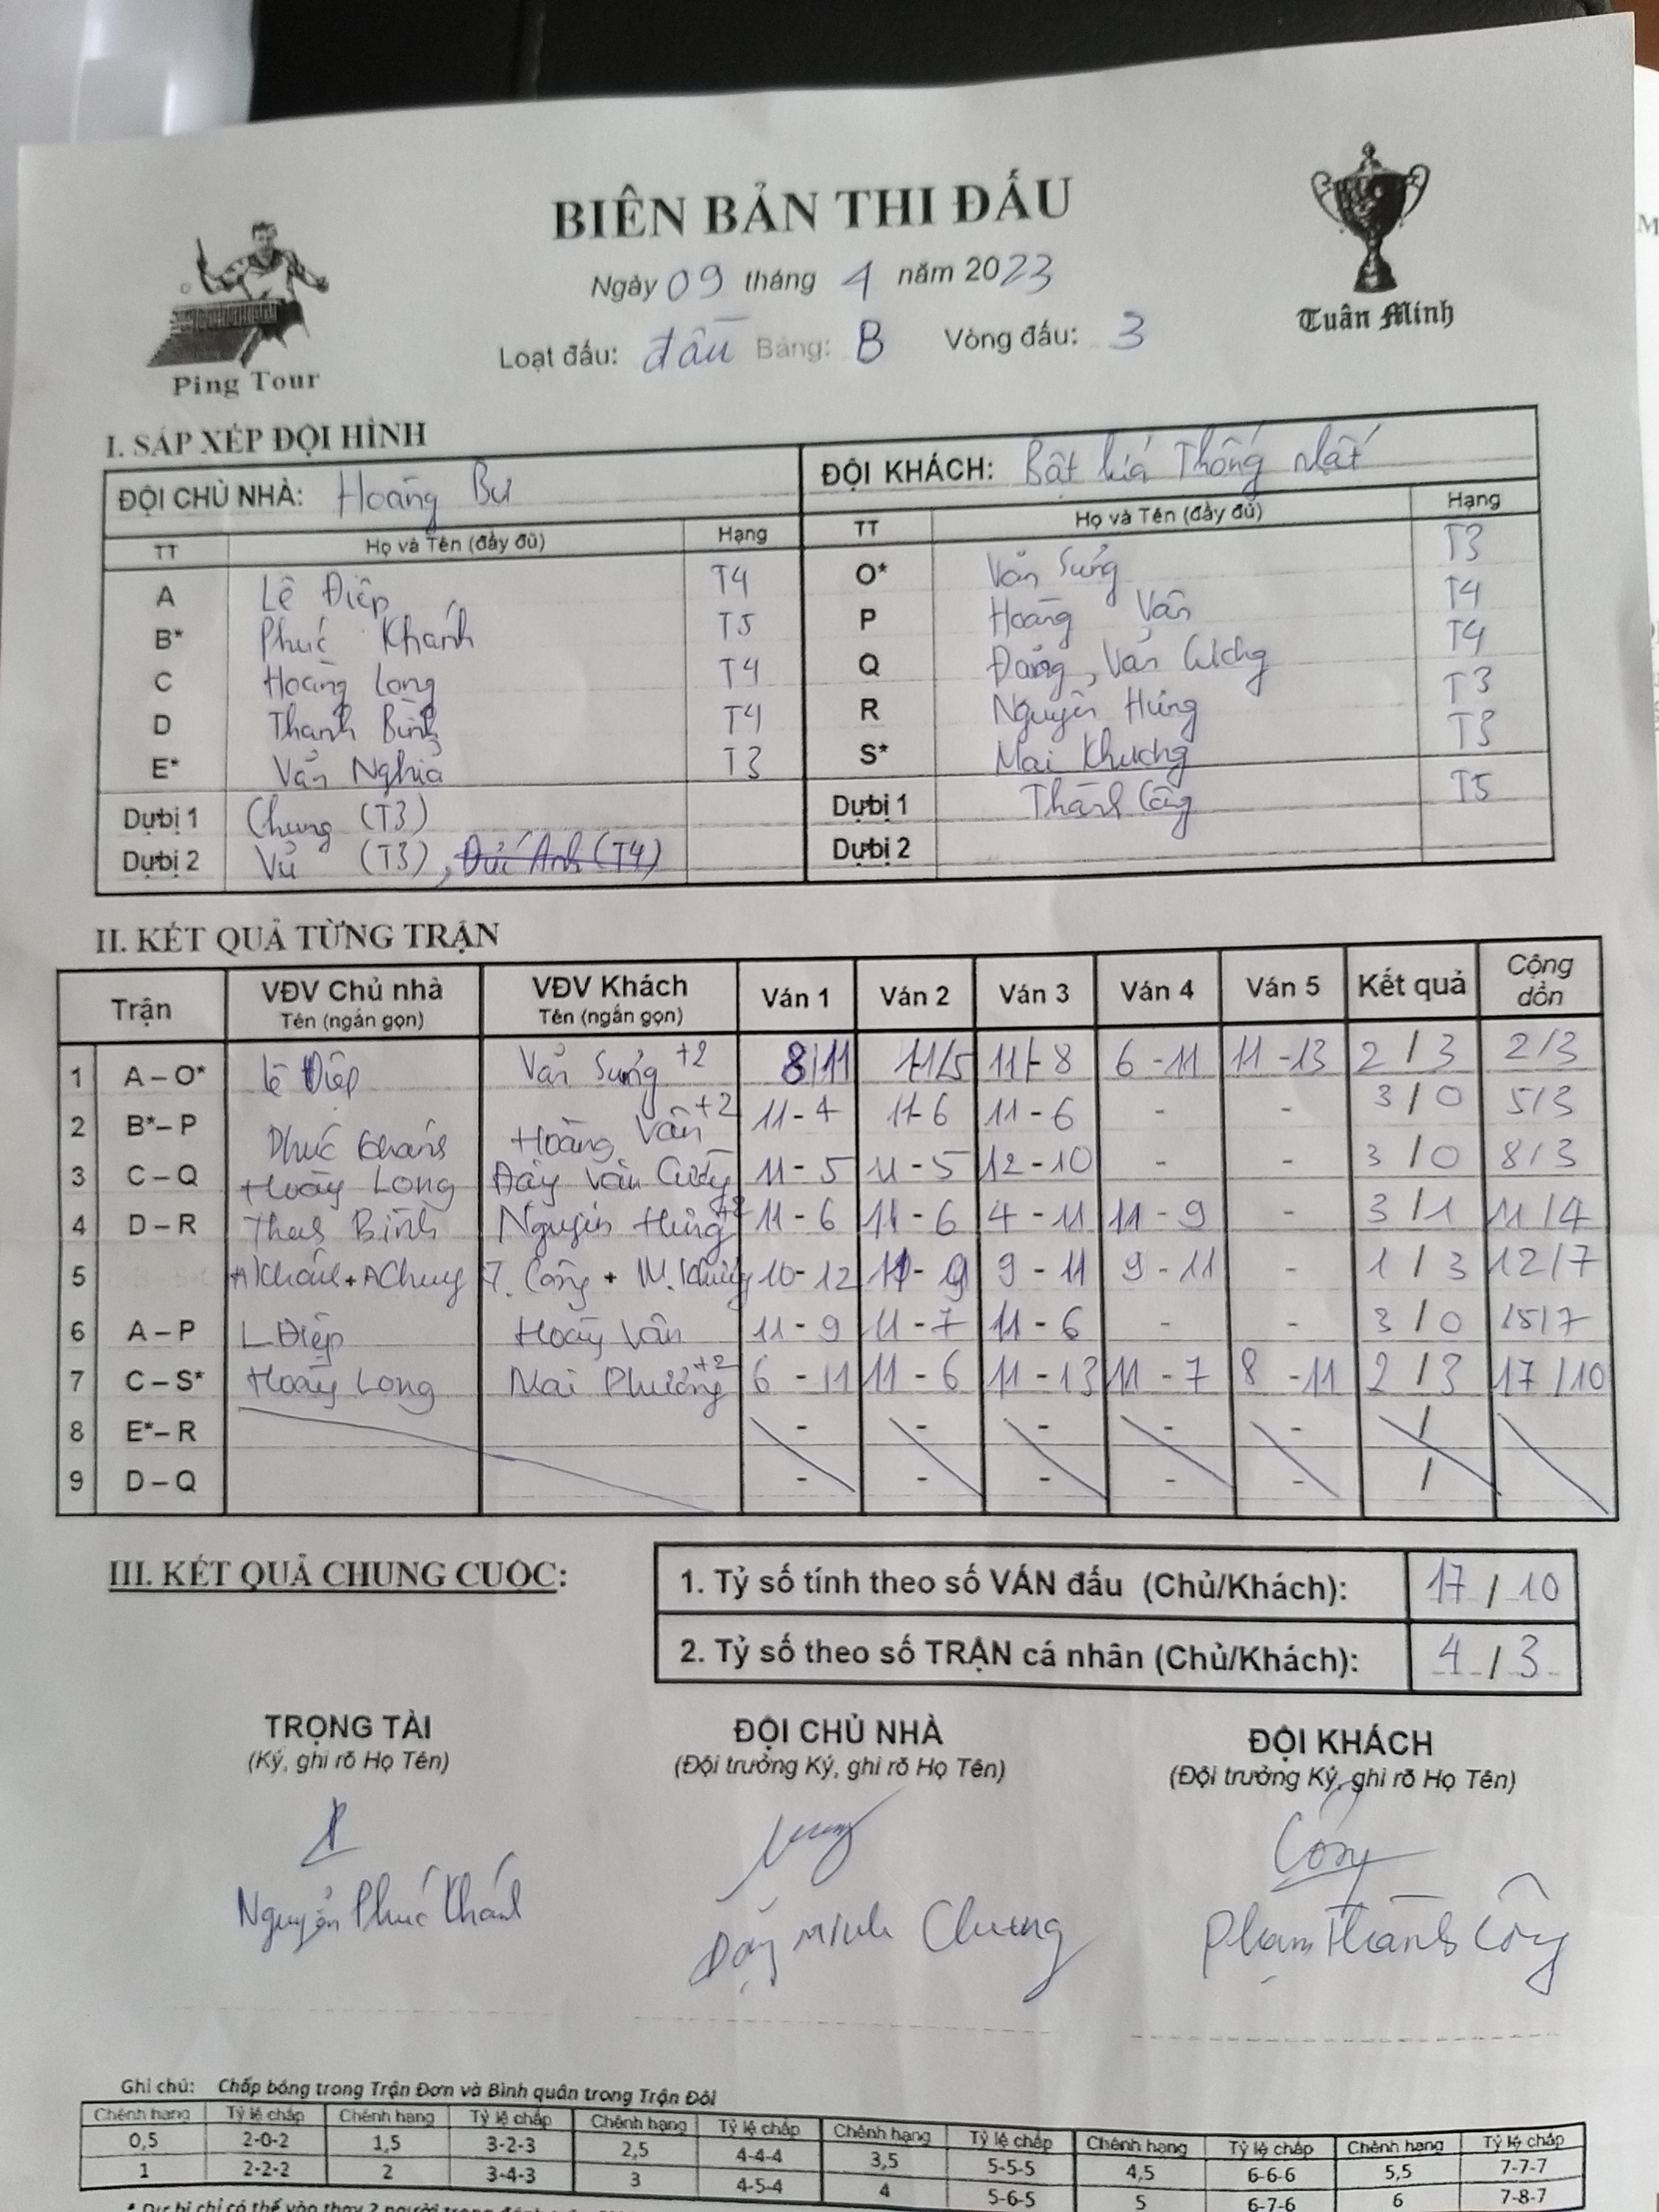 BIÊN BẢN THI ĐẤU
Ngày 09 tháng 4 năm 2023
Loạt đấu: đầu Bảng: B Vòng đấu: 3
Ping Tour
Tuân Minh
I. SẮP XẾP ĐỘI HÌNH
ĐỘI CHỦ NHÀ: Hoàng Bư ĐỘI KHÁCH: Bật hiá Thống nhất
TT Họ và Tên (đầy đủ) Hạng TT Họ và Tên (đầy đủ) Hạng
A Lê Điệp T4 O* Văn Sửng T3
B* Phúc Khánh T5 P Hoàng Vân T4
C Hoàng Long T4 Q Đặng Văn Cường T4
D Thanh Bình T4 R Nguyễn Hưng T3
E* Văn Nghĩa T3 S* Mai Khương T3
Dự bị 1 Chung (T3) Dự bị 1 Thành Công T5
Dự bị 2 Vũ (T3), Đức Anh (T4) Dự bị 2
II. KẾT QUẢ TỪNG TRẬN
Trận VĐV Chủ nhà Tên (ngắn gọn) VĐV Khách Tên (ngắn gọn) Ván 1 Ván 2 Ván 3 Ván 4 Ván 5 Kết quả Cộng dồn
1 A – O* Lê Điệp Văn Sửng +2 8/11 11/5 11-8 6-11 11-13 2/3 2/3
2 B* – P Phúc Khánh Hoàng Vân +2 11-4 11-6 11-6 - - 3/0 5/3
3 C – Q Hoàng Long Đặng Văn Cường 11-5 11-5 12-10 - - 3/0 8/3
4 D – R Thanh Bình Nguyễn Hưng +2 11-6 11-6 4-11 11-9 - 3/1 11/4
5 AKhánh + AChung T. Công + M. Khương 10-12 11-9 9-11 9-11 - 1/3 12/7
6 A – P L Điệp Hoàng Vân 11-9 11-7 11-6 - - 3/0 15/7
7 C – S* Hoàng Long Mai Phương +2 6-11 11-6 11-13 11-7 8-11 2/3 17/10
8 E* – R - - - - - /
9 D – Q - - - - - /
III. KẾT QUẢ CHUNG CUỘC:
1. Tỷ số tính theo số VÁN đấu (Chủ/Khách): 17 / 10
2. Tỷ số theo số TRẬN cá nhân (Chủ/Khách): 4 / 3
TRỌNG TÀI ĐỘI CHỦ NHÀ ĐỘI KHÁCH
(Ký, ghi rõ Họ Tên) (Đội trưởng Ký, ghi rõ Họ Tên) (Đội trưởng Ký, ghi rõ Họ Tên)
Công
Nguyễn Phúc Khánh Đặng Minh Chung Phạm Thành Công
Ghi chú: Chấp bóng trong Trận Đơn và Bình quân trong Trận Đôi
Chênh hạng Tỷ lệ chấp Chênh hạng Tỷ lệ chấp Chênh hạng Tỷ lệ chấp Chênh hạng Tỷ lệ chấp Chênh hạng Tỷ lệ chấp Chênh hạng Tỷ lệ chấp
0,5 2-0-2 1,5 3-2-3 2,5 4-4-4 3,5 5-5-5 4,5 6-6-6 5,5 7-7-7
1 2-2-2 2 3-4-3 3 4-5-4 4 5-6-5 5 6-7-6 6 7-8-7